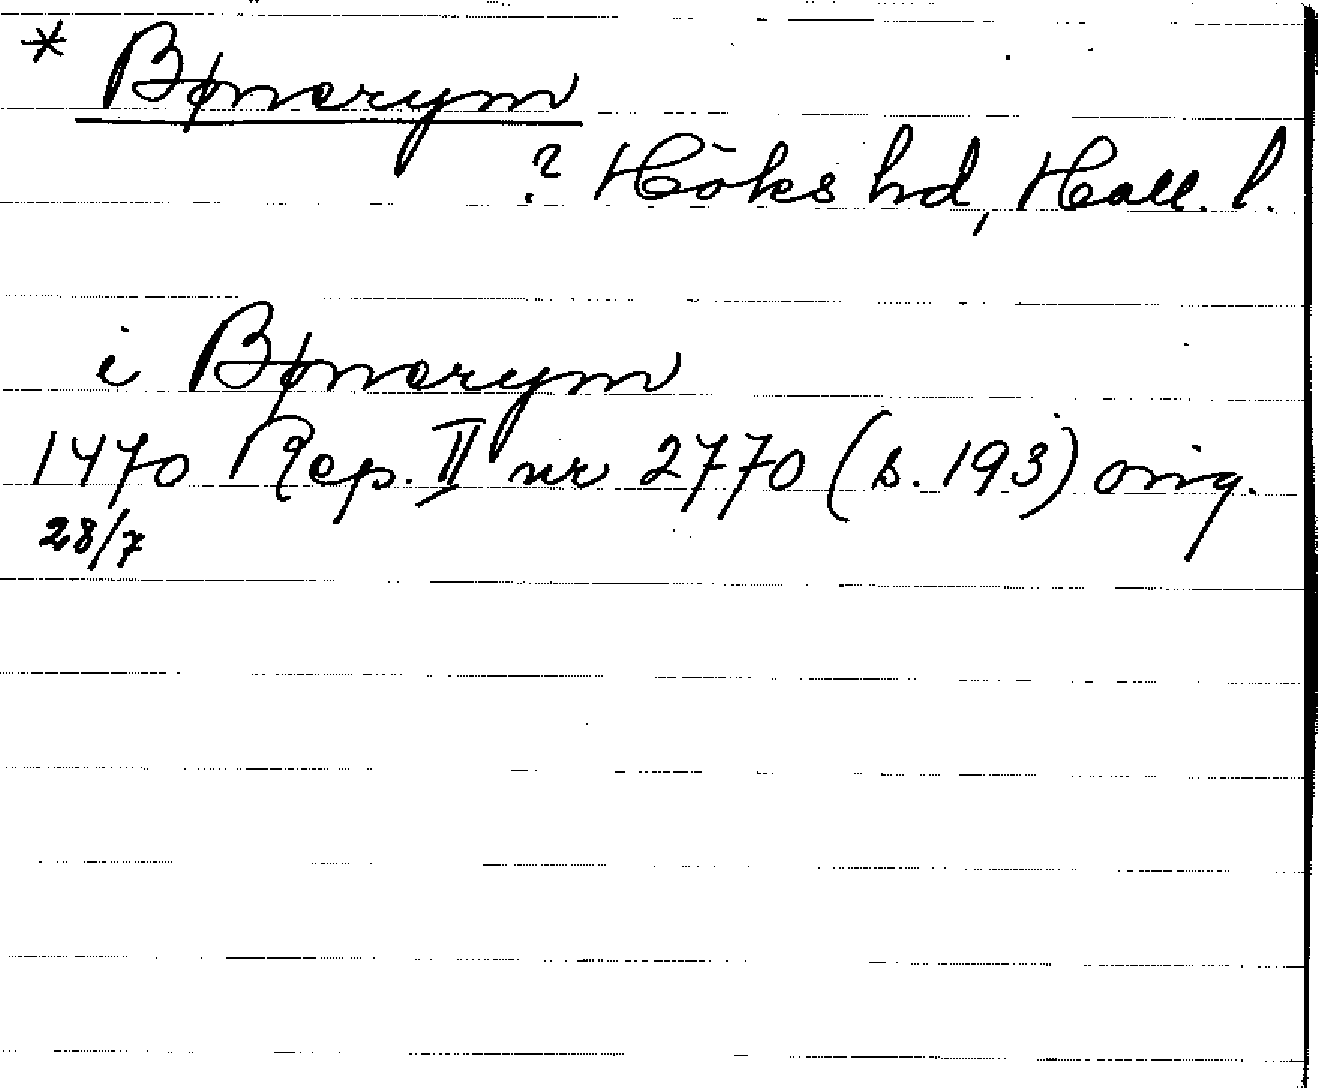 * Bønerym
? Höks hd, Hall. l.
i Bønerym
1470 Rep. II nr 2770 (s. 193) orig.
28/7